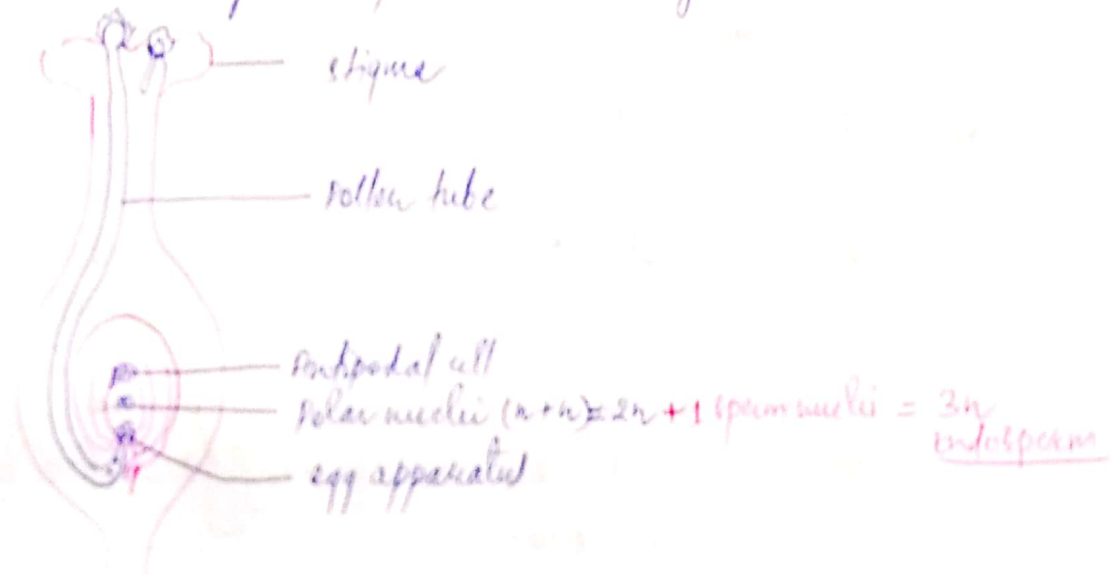 stigma
Pollen tube
Antipodal cell
Polar nuclei (n+n)=2n + 1 sperm nuclei = 3n
endosperm
egg apparatus